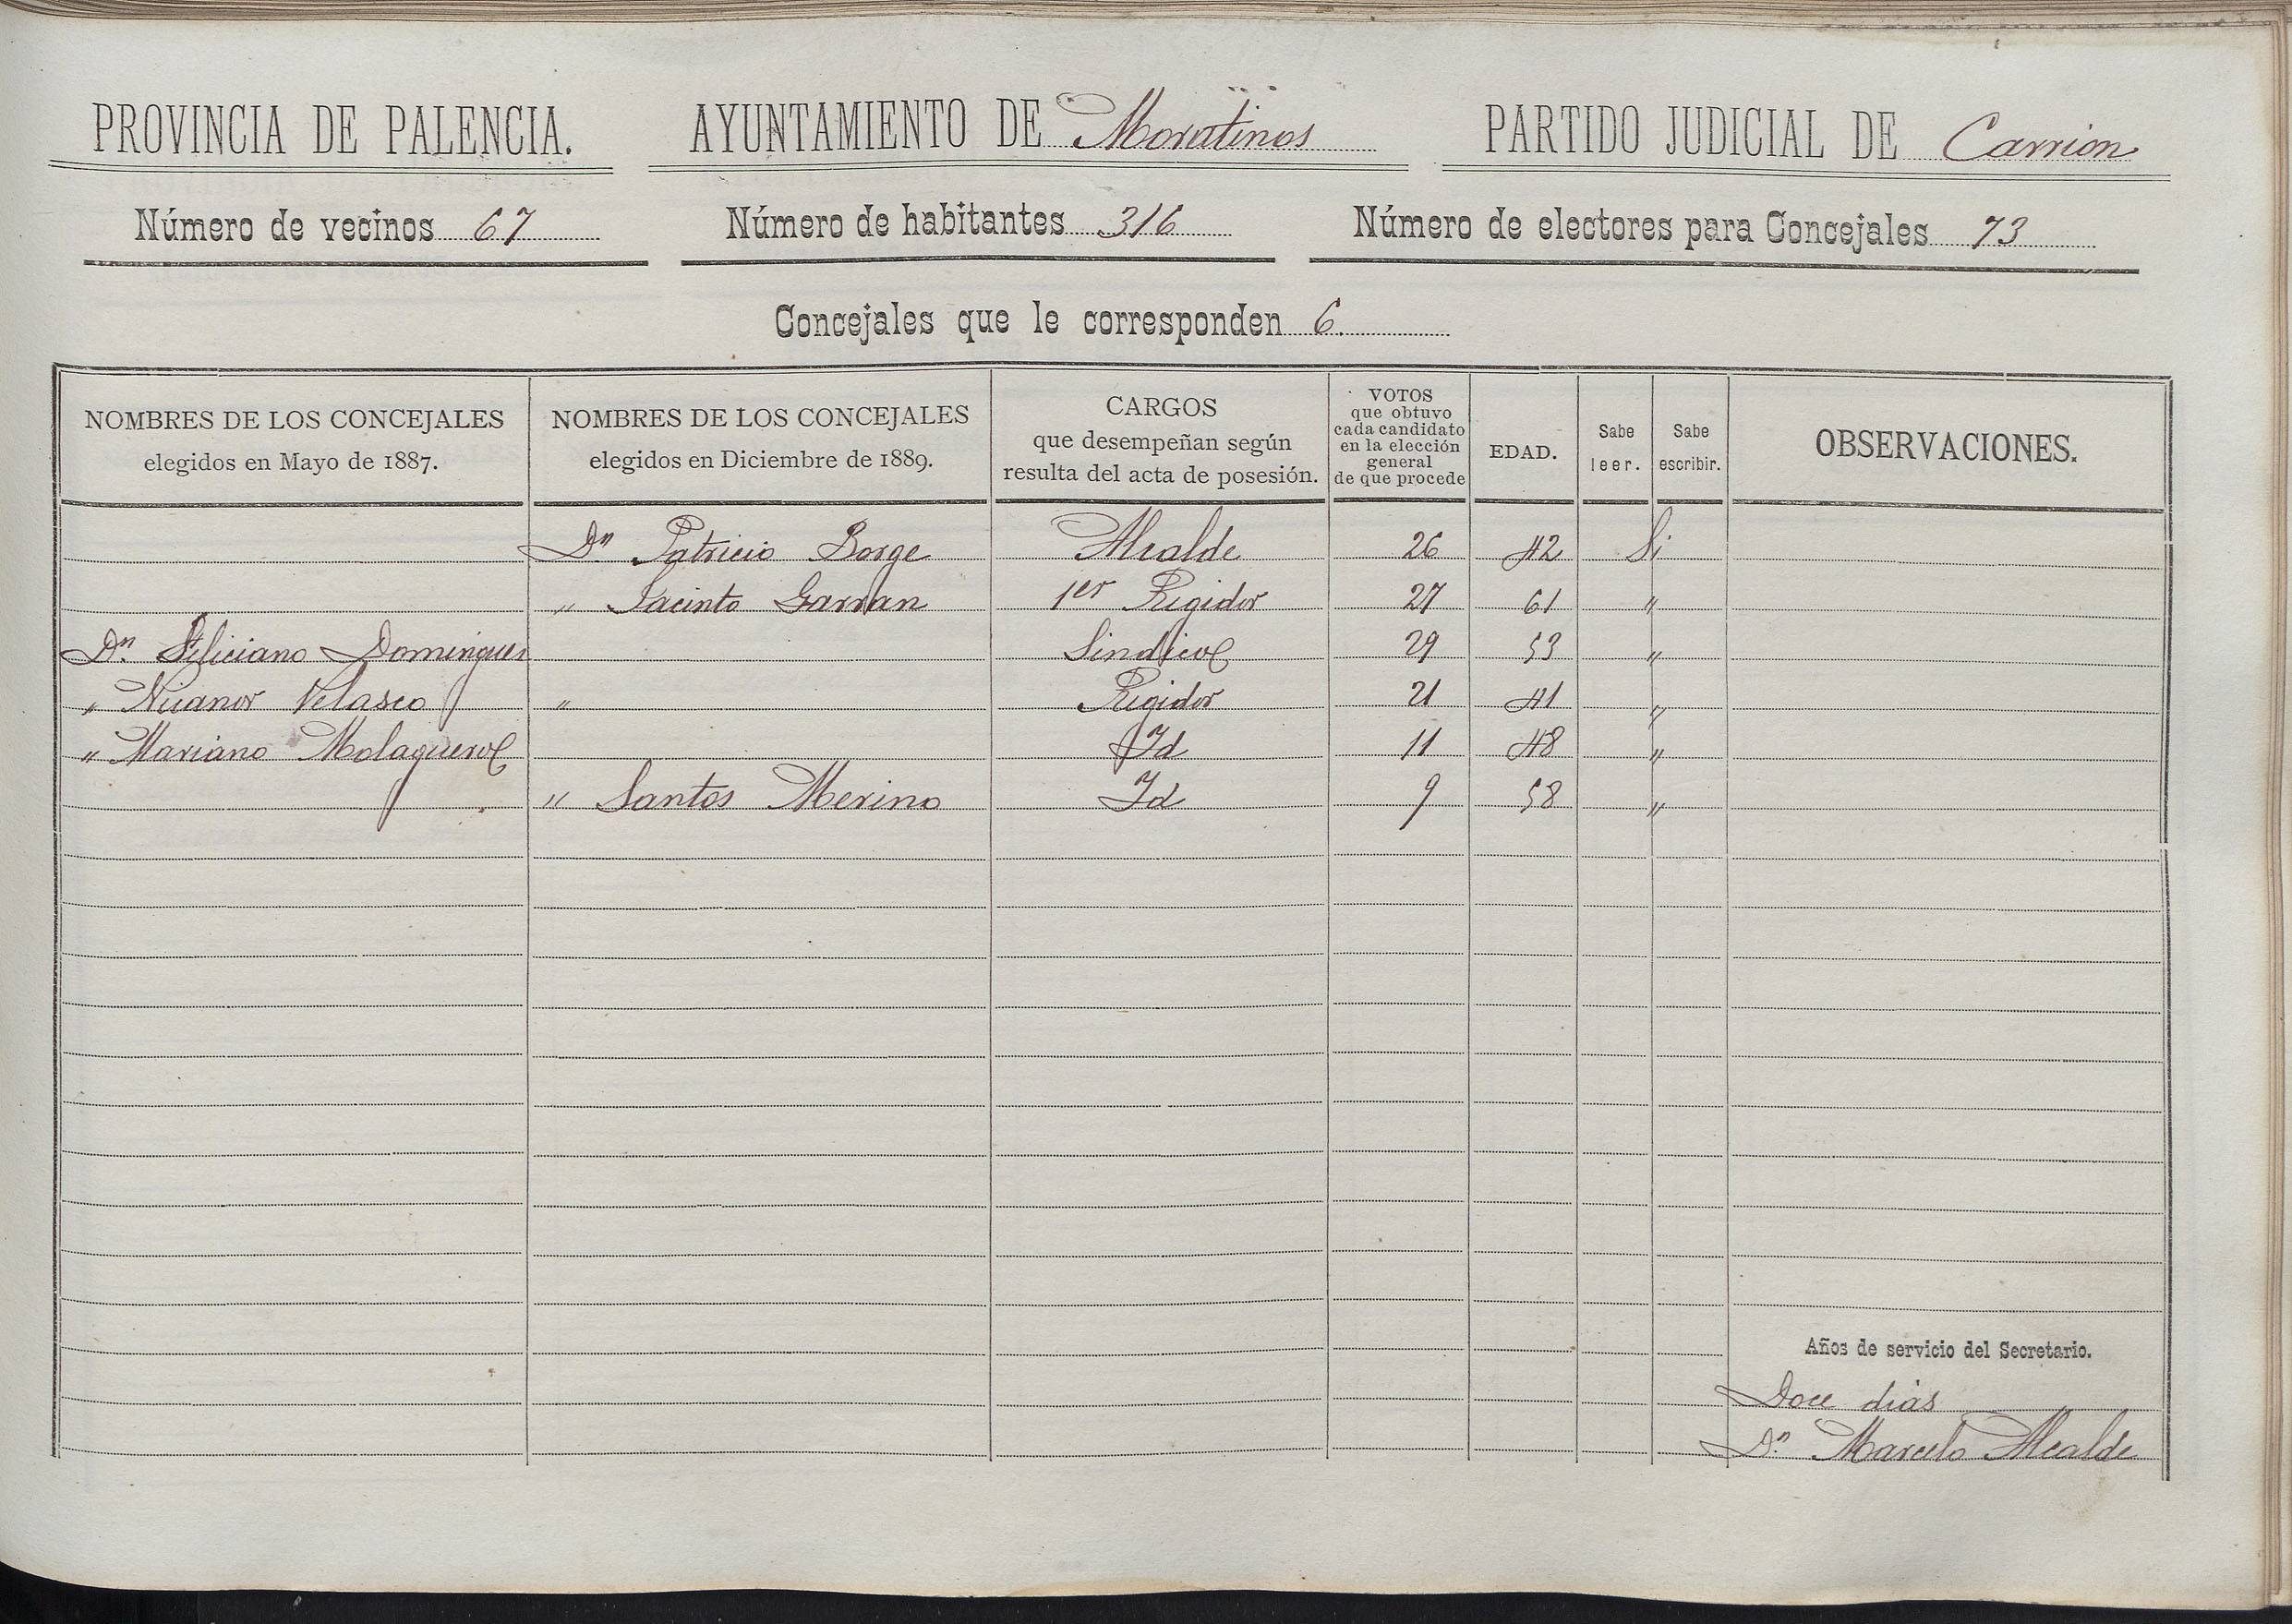 PROVINCIA DE PALENCIA. AYUNTAMIENTO DE Moratinos PARTIDO JUDICIAL DE Carrion
Número de vecinos 67 Número de habitantes 316 Número de electores para Concejales 73
Concejales que le corresponden 6.
NOMBRES DE LOS CONCEJALES
elegidos en Mayo de 1887.
NOMBRES DE LOS CONCEJALES
elegidos en Diciembre de 1889.
CARGOS
que desempeñan según
resulta del acta de posesión.
VOTOS
que obtuvo
cada candidato
en la elección
general
de que procede
EDAD.
Sabe
leer.
Sabe
escribir.
OBSERVACIONES.
Dn Patricio Borge Alcalde 26 42 Si
" Jacinto Garran 1er Rigidor 27 61 "
Dn. Feliciano Domingues Sindico 29 53 "
" Nicanor Velasco " Rigidor 21 41 "
" Mariano Molaguero Id 11 48 "
" Santos Merino Id 9 58 "
Años de servicio del Secretario.
Doce dias
Dn. Marcelo Alcalde